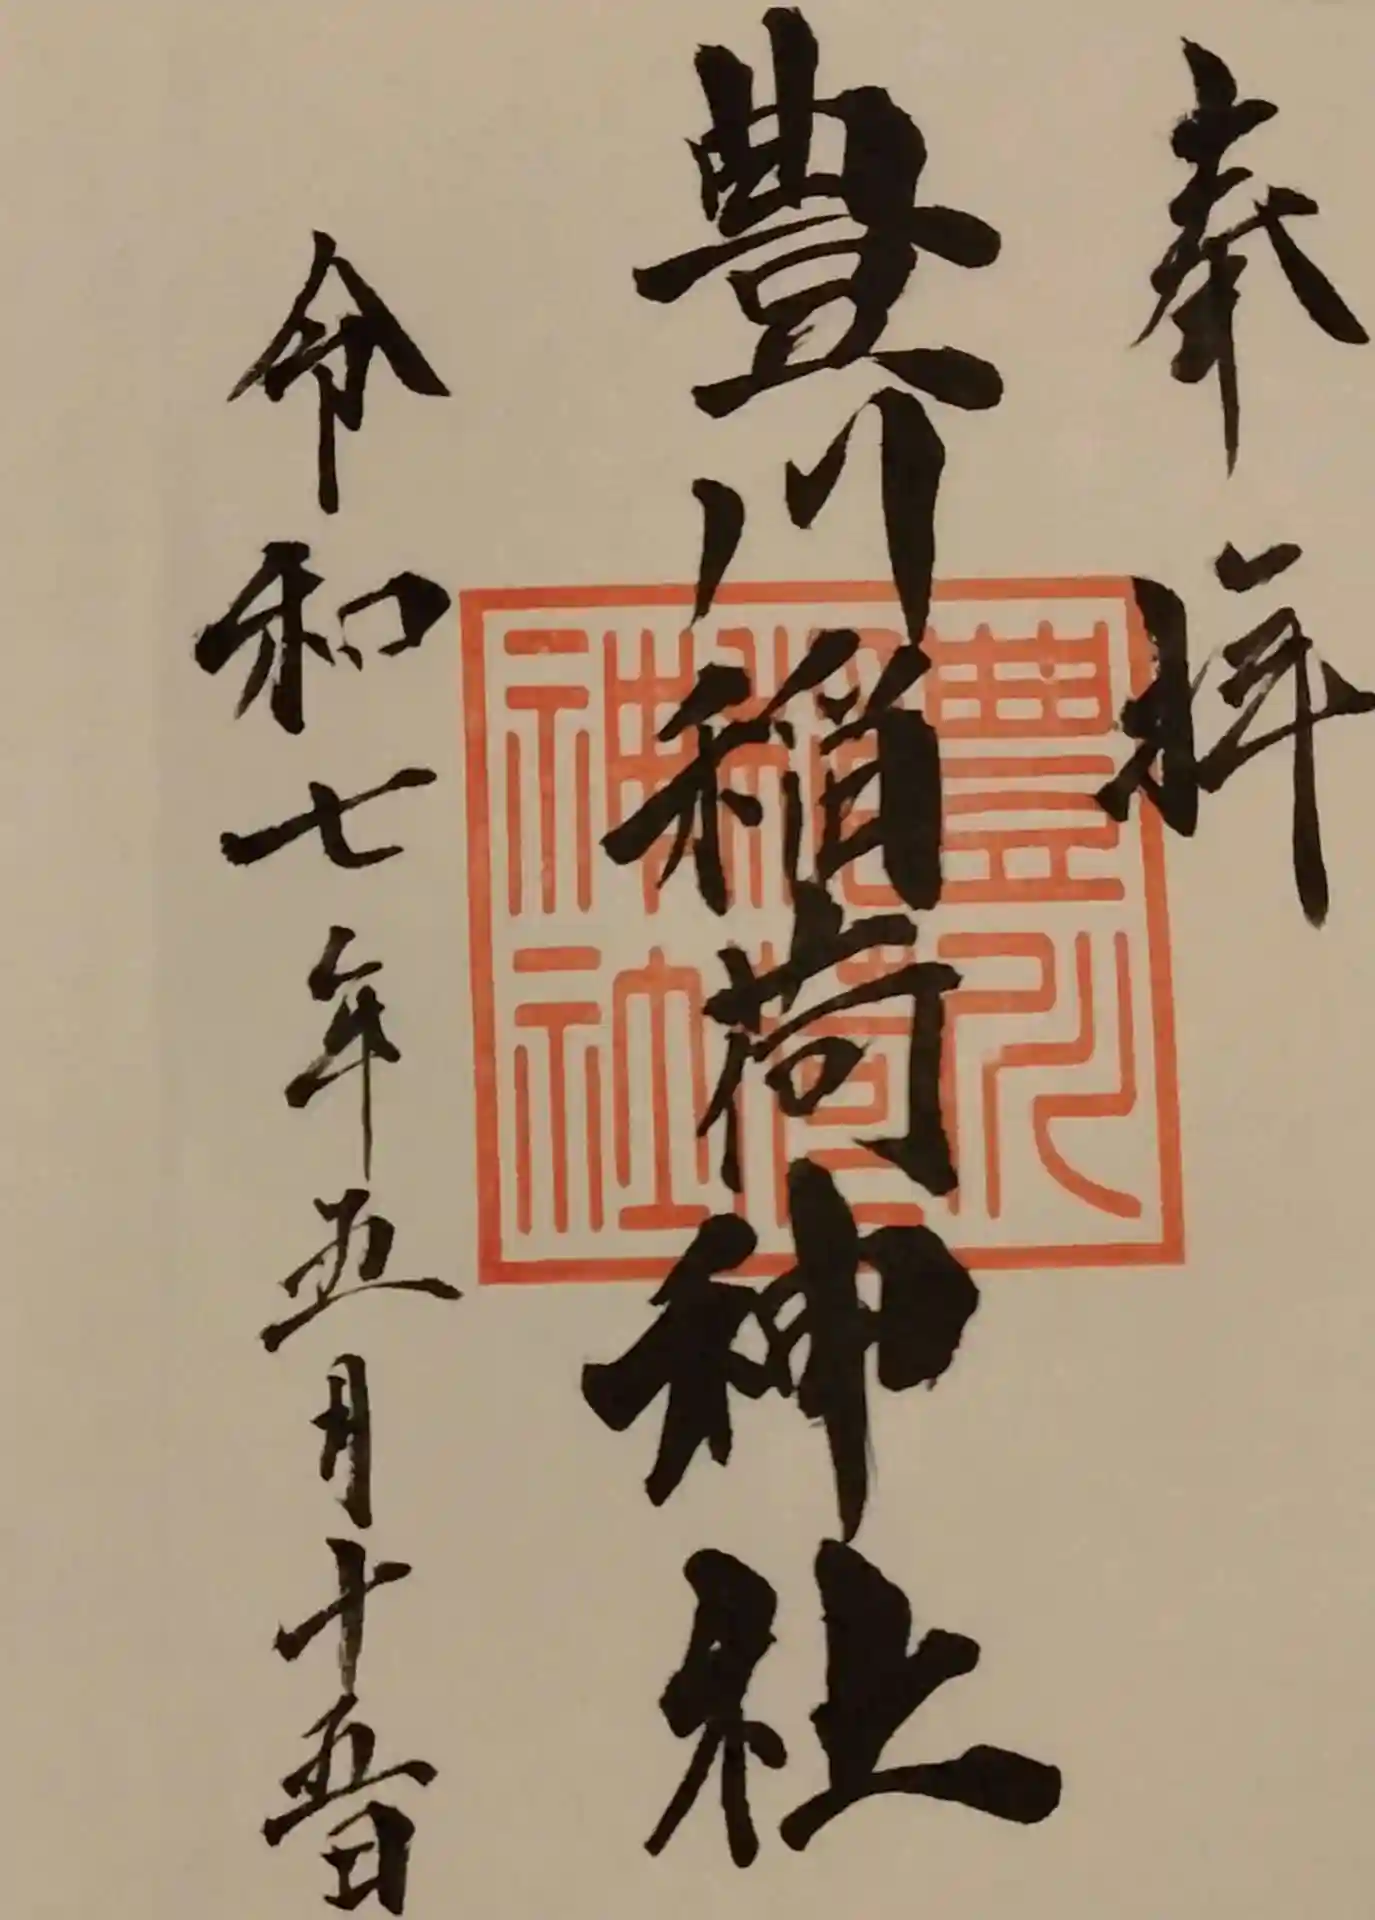 奉拝
豊川稲荷神社
豊川
稲荷
神社
令和七年五月十五日